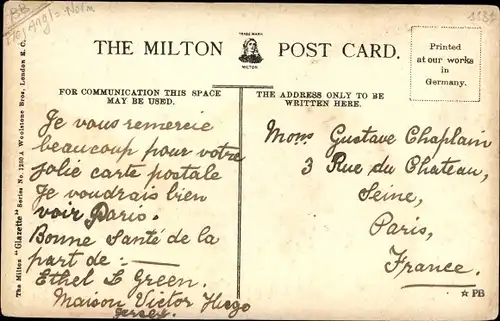 BB
1131
TRADE MARK
THE MILTON POST CARD.
MILTON
Printed
at our works
in
Germany.
FOR COMMUNICATION THIS SPACE
MAY BE USED.
THE ADDRESS ONLY TO BE
WRITTEN HERE.
Je vous remercie
beaucoup pour votre
jolie carte postale
Je voudrais bien
voir Paris.
Bonne Santé de la
part de :—
Ethel L Green.
Maison Victor Hugo
Jersey.
Mons Gustave Chaplain
3 Rue du Château,
Seine,
Paris,
France.
☆ PB
The Milton "Glazette" Series No. 1280 A Woolstone Bros, London E.C.